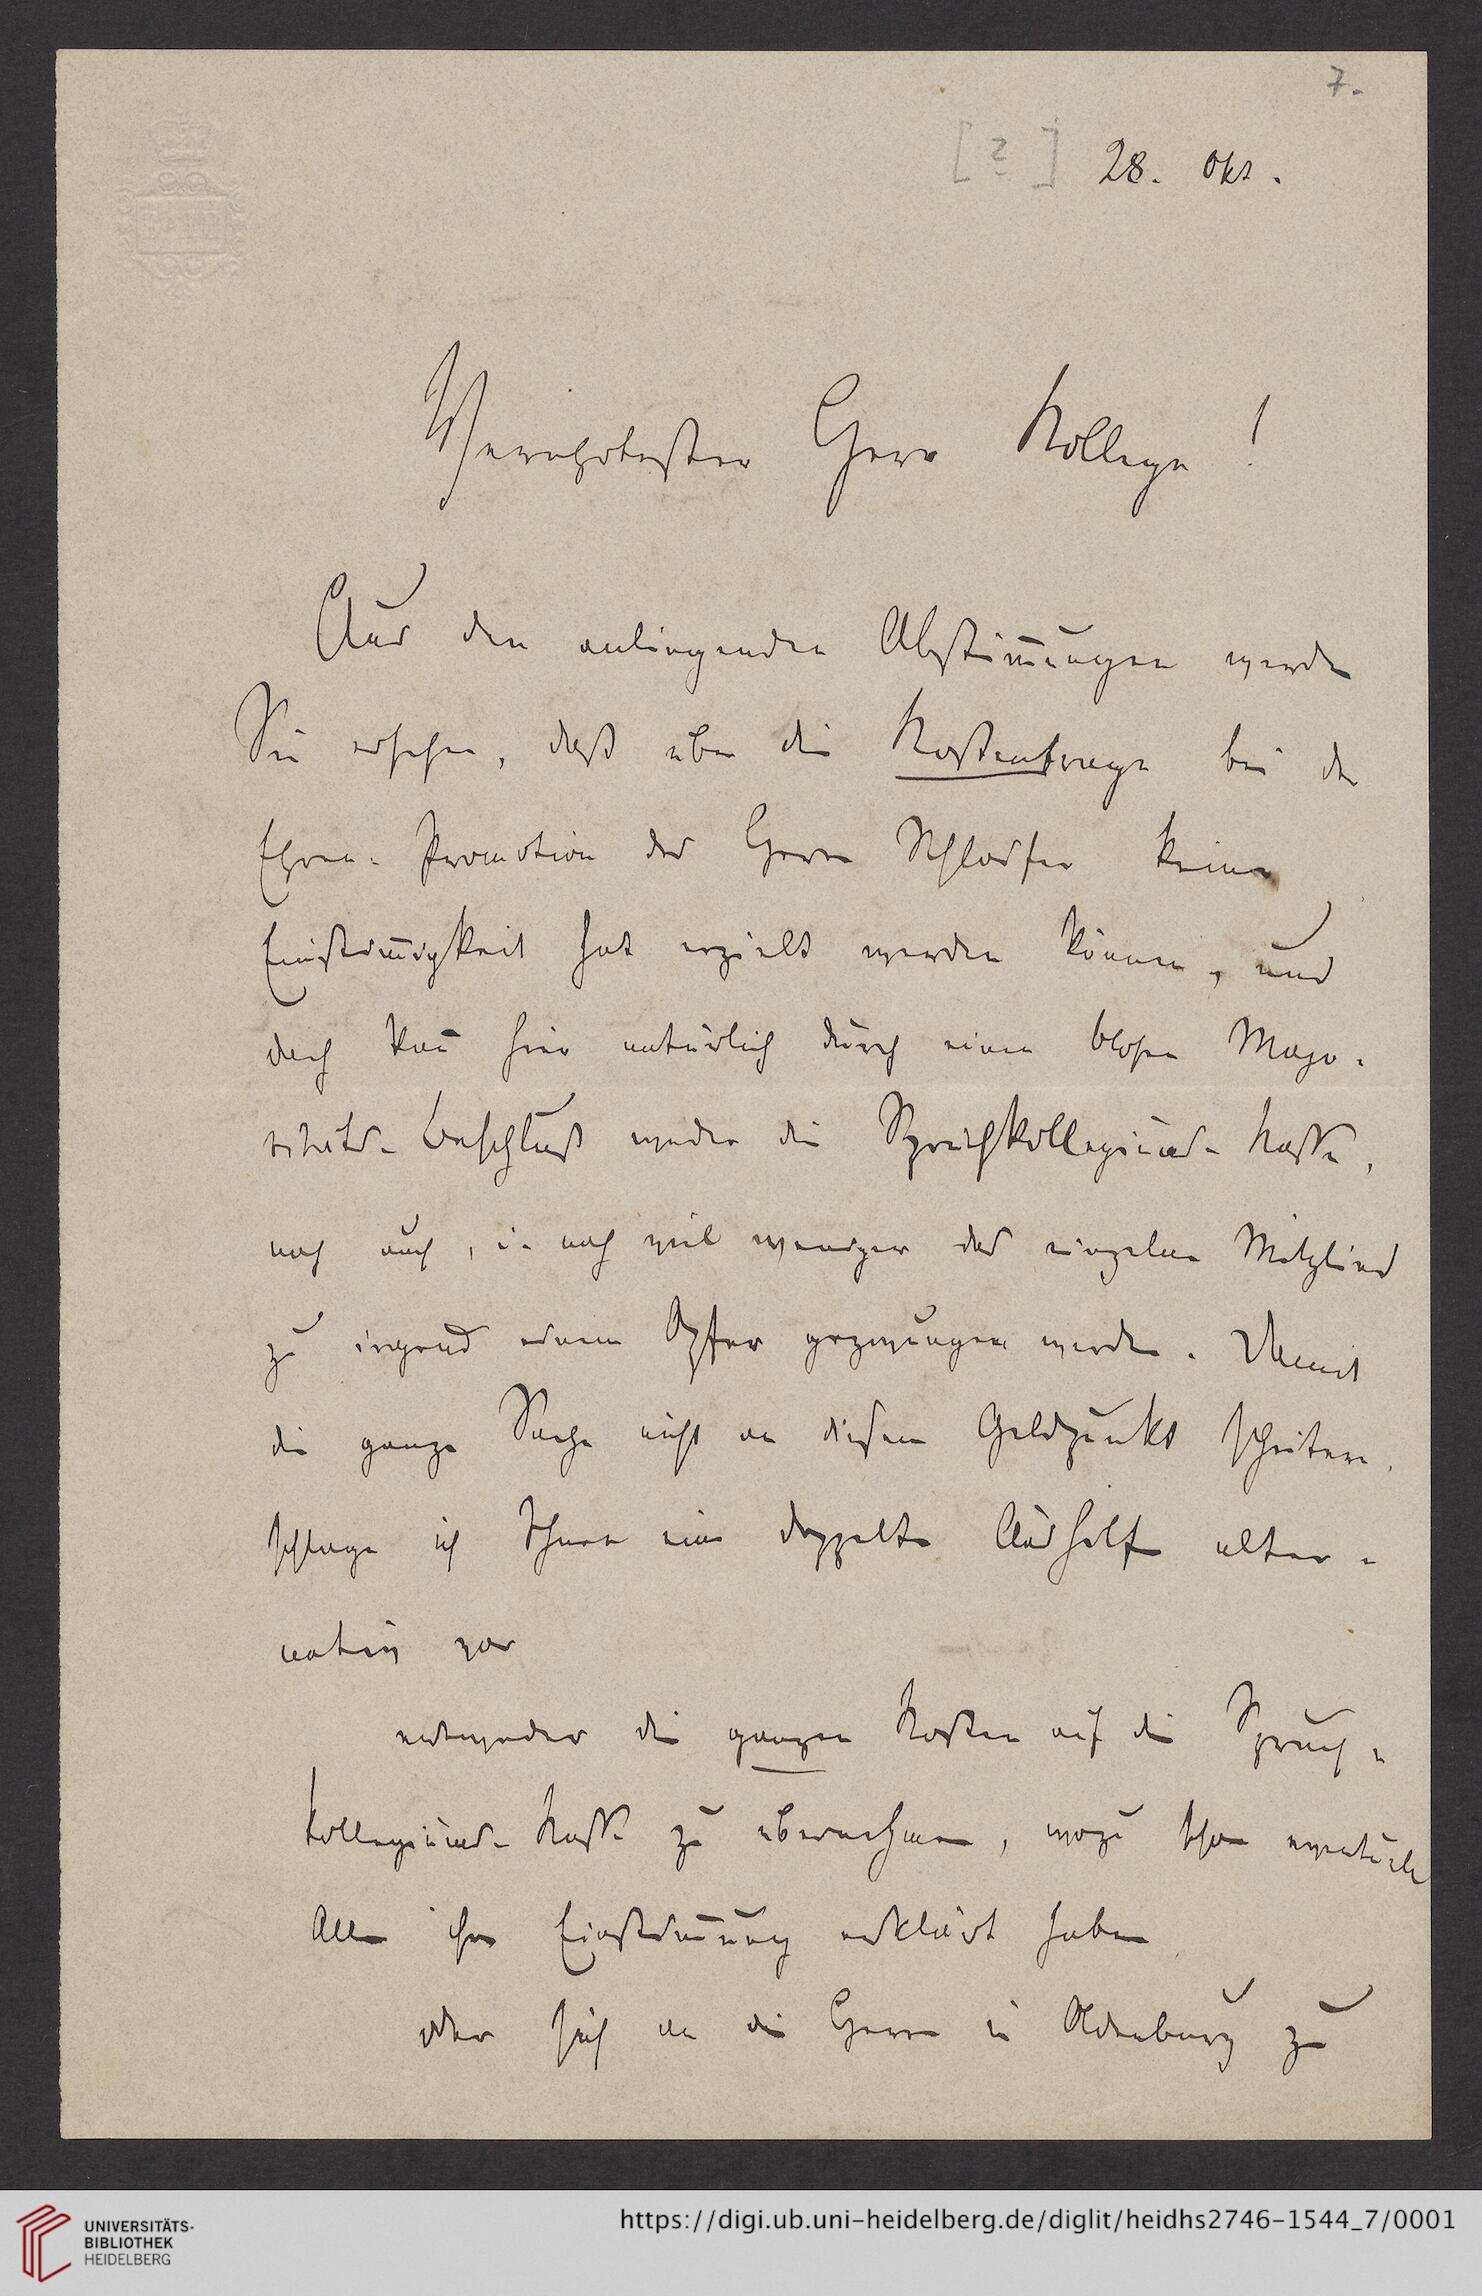 7.
[?] 28. Okt.
Verehrtester Herr Kollege!
Aus den anliegenden Abstimmungen werden
Sie ersehen, daß über die Kostenfrage bei der
Ehren-Promotion des Herrn Schloifer keine
Einstimmigkeit hat erzielt werden können, und
doch kann hier natürlich durch einen bloßen Majo-
ritäts-Beschluß weder die Spruchkollegiums-Kasse,
noch auch, u. noch viel weniger das einzelne Mitglied
zu irgend einem Opfer gezwungen werden. Damit
die ganze Sache nicht an diesem Geldpunkt scheitere,
schlage ich Ihnen eine doppelte Aushilfe alter-
nativ vor
entweder die ganzen Kosten auf die Spruch-
kollegiums-Kasse zu übernehmen, wozu schon eventuell
Alle ihre Einstimmung erklärt haben
oder sich an die Herren in Oldenburg zu
UNIVERSITÄTS-
BIBLIOTHEK
HEIDELBERG
https://digi.ub.uni-heidelberg.de/diglit/heidhs2746-1544_7/0001